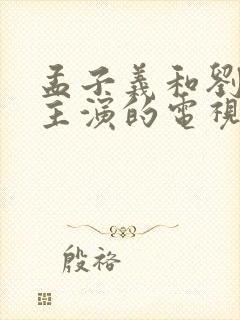 孟子義和劉
主演的電視
殷袼